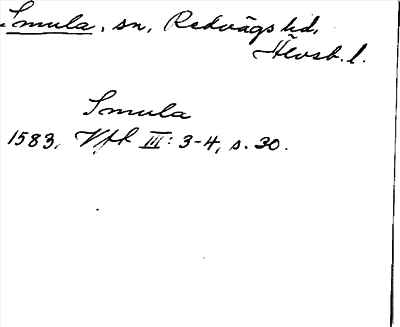 Smula, sn, Redvägs hd,
Älvsb. l.
Smula
1583, Vft III: 3-4, s. 30.